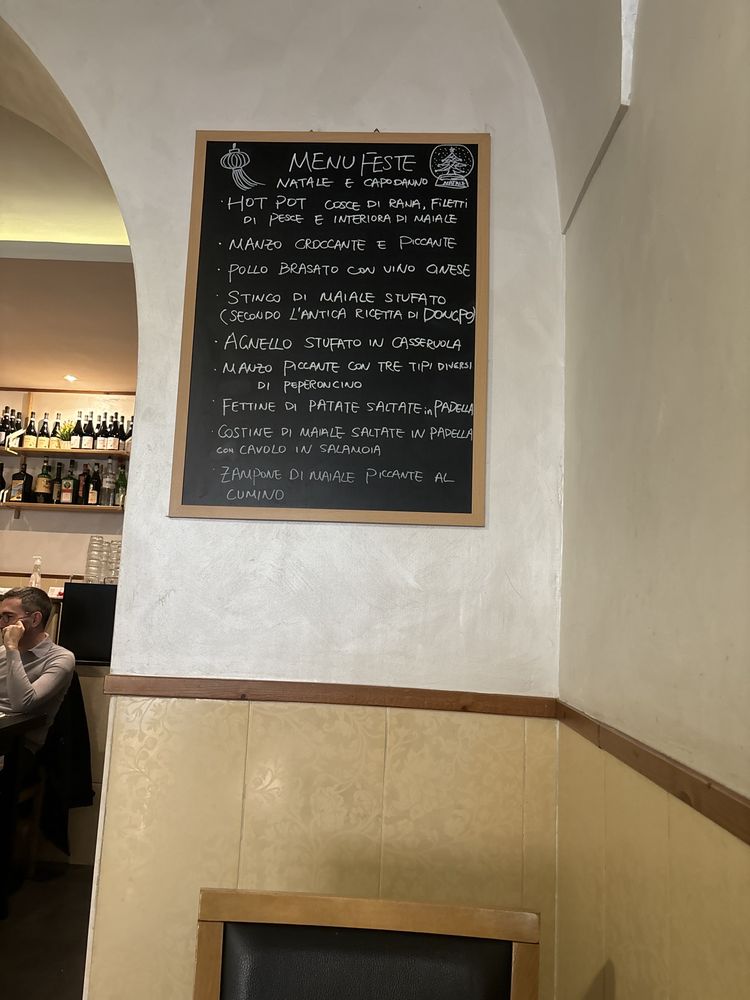 MENU FESTE
NATALE E CAPODANNO
· HOT POT COSCE DI RANA, FILETTI
DI PESCE E INTERIORA DI MAIALE
· MANZO CROCCANTE E PICCANTE
· POLLO BRASATO CON VINO CINESE
· STINCO DI MAIALE STUFATO
(SECONDO L'ANTICA RICETTA DI DONGPO)
· AGNELLO STUFATO IN CASSERUOLA
· MANZO PICCANTE CON TRE TIPI DIVERSI
DI PEPERONCINO
· FETTINE DI PATATE SALTATE in PADELLA
· COSTINE DI MAIALE SALTATE IN PADELLA
CON CAVOLO IN SALAMOIA
· ZAMPONE DI MAIALE PICCANTE AL
CUMINO
NATALE